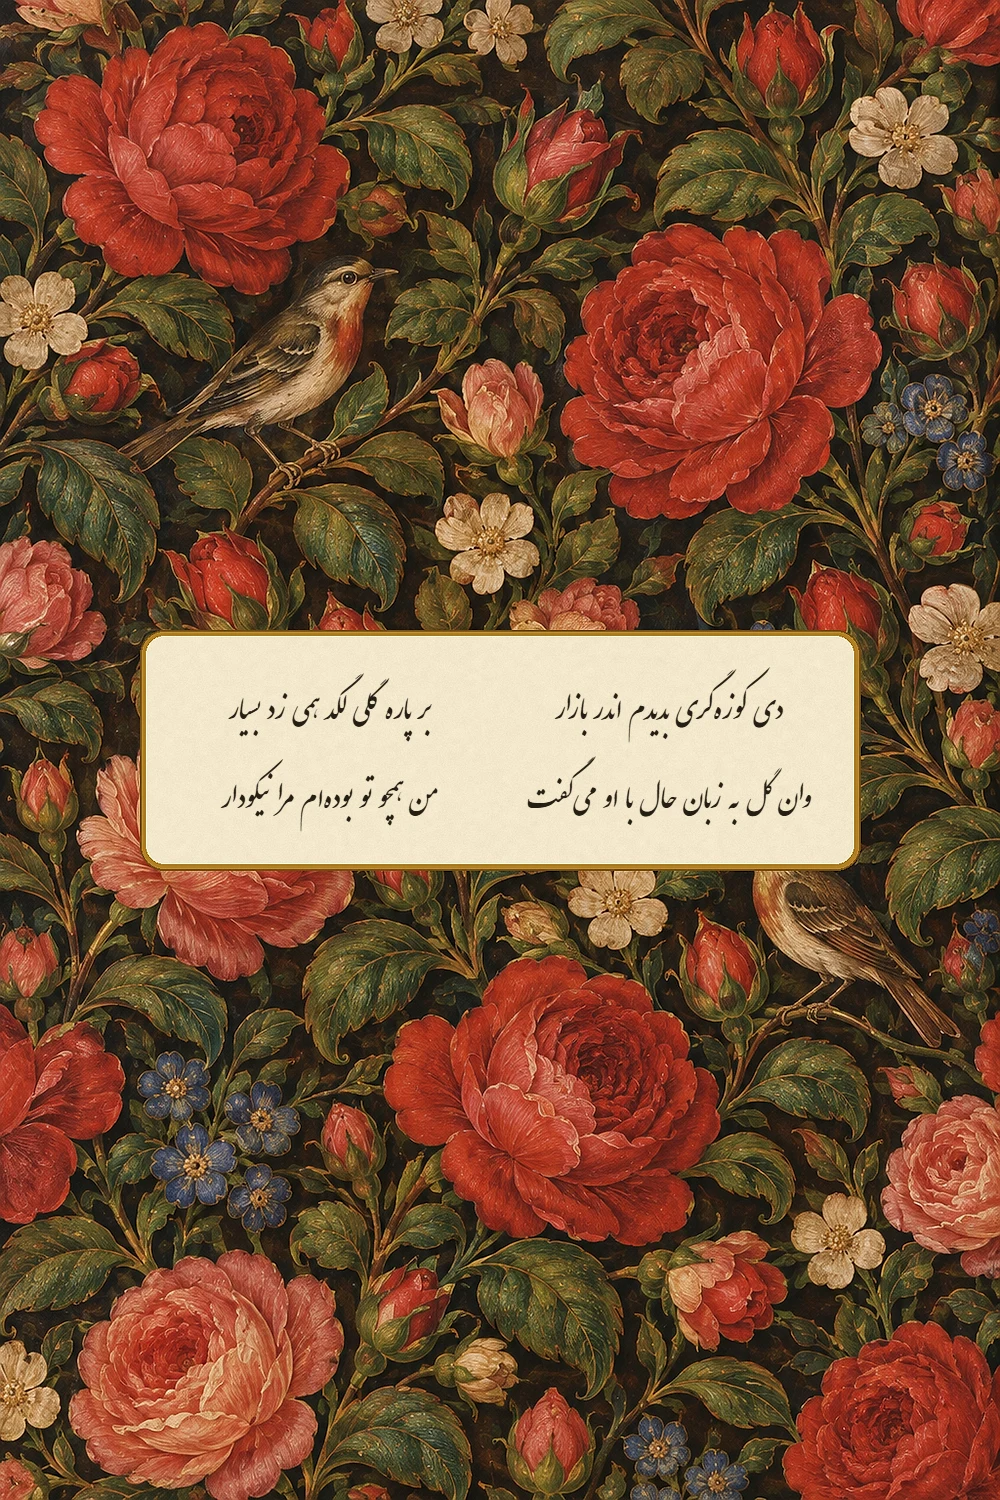 دی کوزه‌گری بدیدم اندر بازار بر پاره گلی لگد همی زد بسیار
وان گل به زبان حال با او می‌گفت من همچو تو بوده‌ام مرا نیکودار